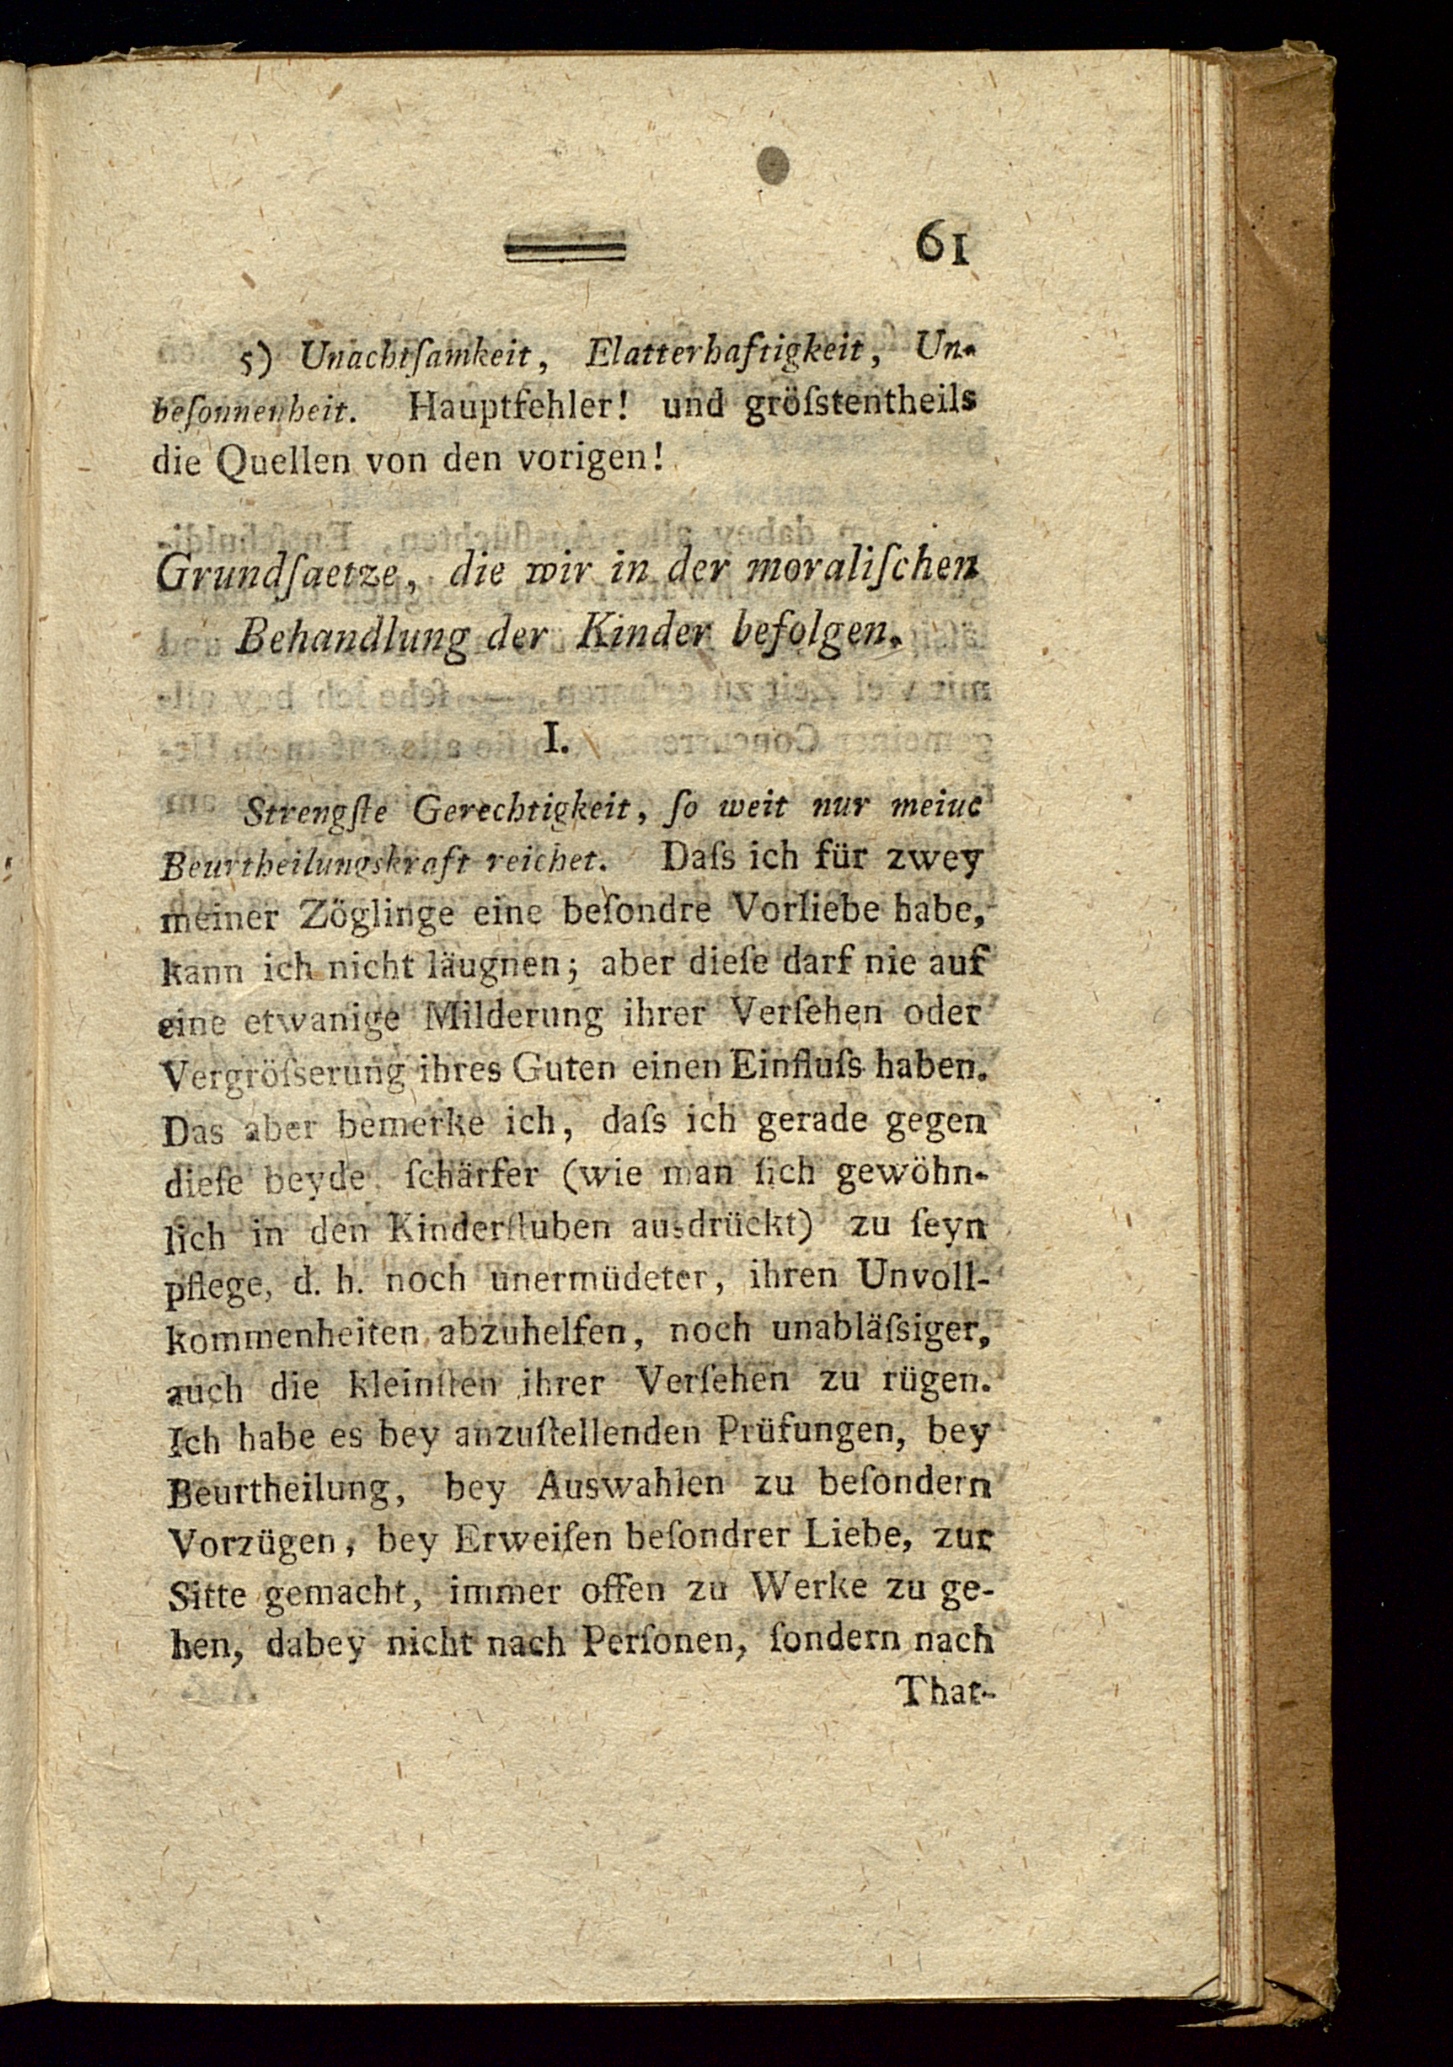 61
5) Unachtſamkeit, Elatterhaftigkeit, Un-
beſonnenheit. Hauptfehler! und gröſstentheils
die Quellen von den vorigen!
Grundſaetze, die wir in der moraliſchen
Behandlung der Kinder befolgen.
I.
Strengſte Gerechtigkeit, ſo weit nur meiue
Beurtheilungskraft reichet. Daſs ich für zwey
meiner Zöglinge eine beſondre Vorliebe habe,
kann ich nicht läugnen; aber dieſe darf nie auf
eine etwanige Milderung ihrer Verſehen oder
Vergröſserung ihres Guten einen Einfluſs haben.
Das aber bemerke ich, daſs ich gerade gegen
dieſe beyde ſchärfer (wie man ſich gewöhn-
lich in den Kinderſtuben ausdrückt) zu ſeyn
pflege, d. h. noch unermüdeter, ihren Unvoll-
kommenheiten abzuhelfen, noch unabläſsiger,
auch die kleinſten ihrer Verſehen zu rügen.
Ich habe es bey anzuſtellenden Prüfungen, bey
Beurtheilung, bey Auswahlen zu beſondern
Vorzügen, bey Erweiſen beſondrer Liebe, zur
Sitte gemacht, immer offen zu Werke zu ge-
hen, dabey nicht nach Perſonen, ſondern nach
That-